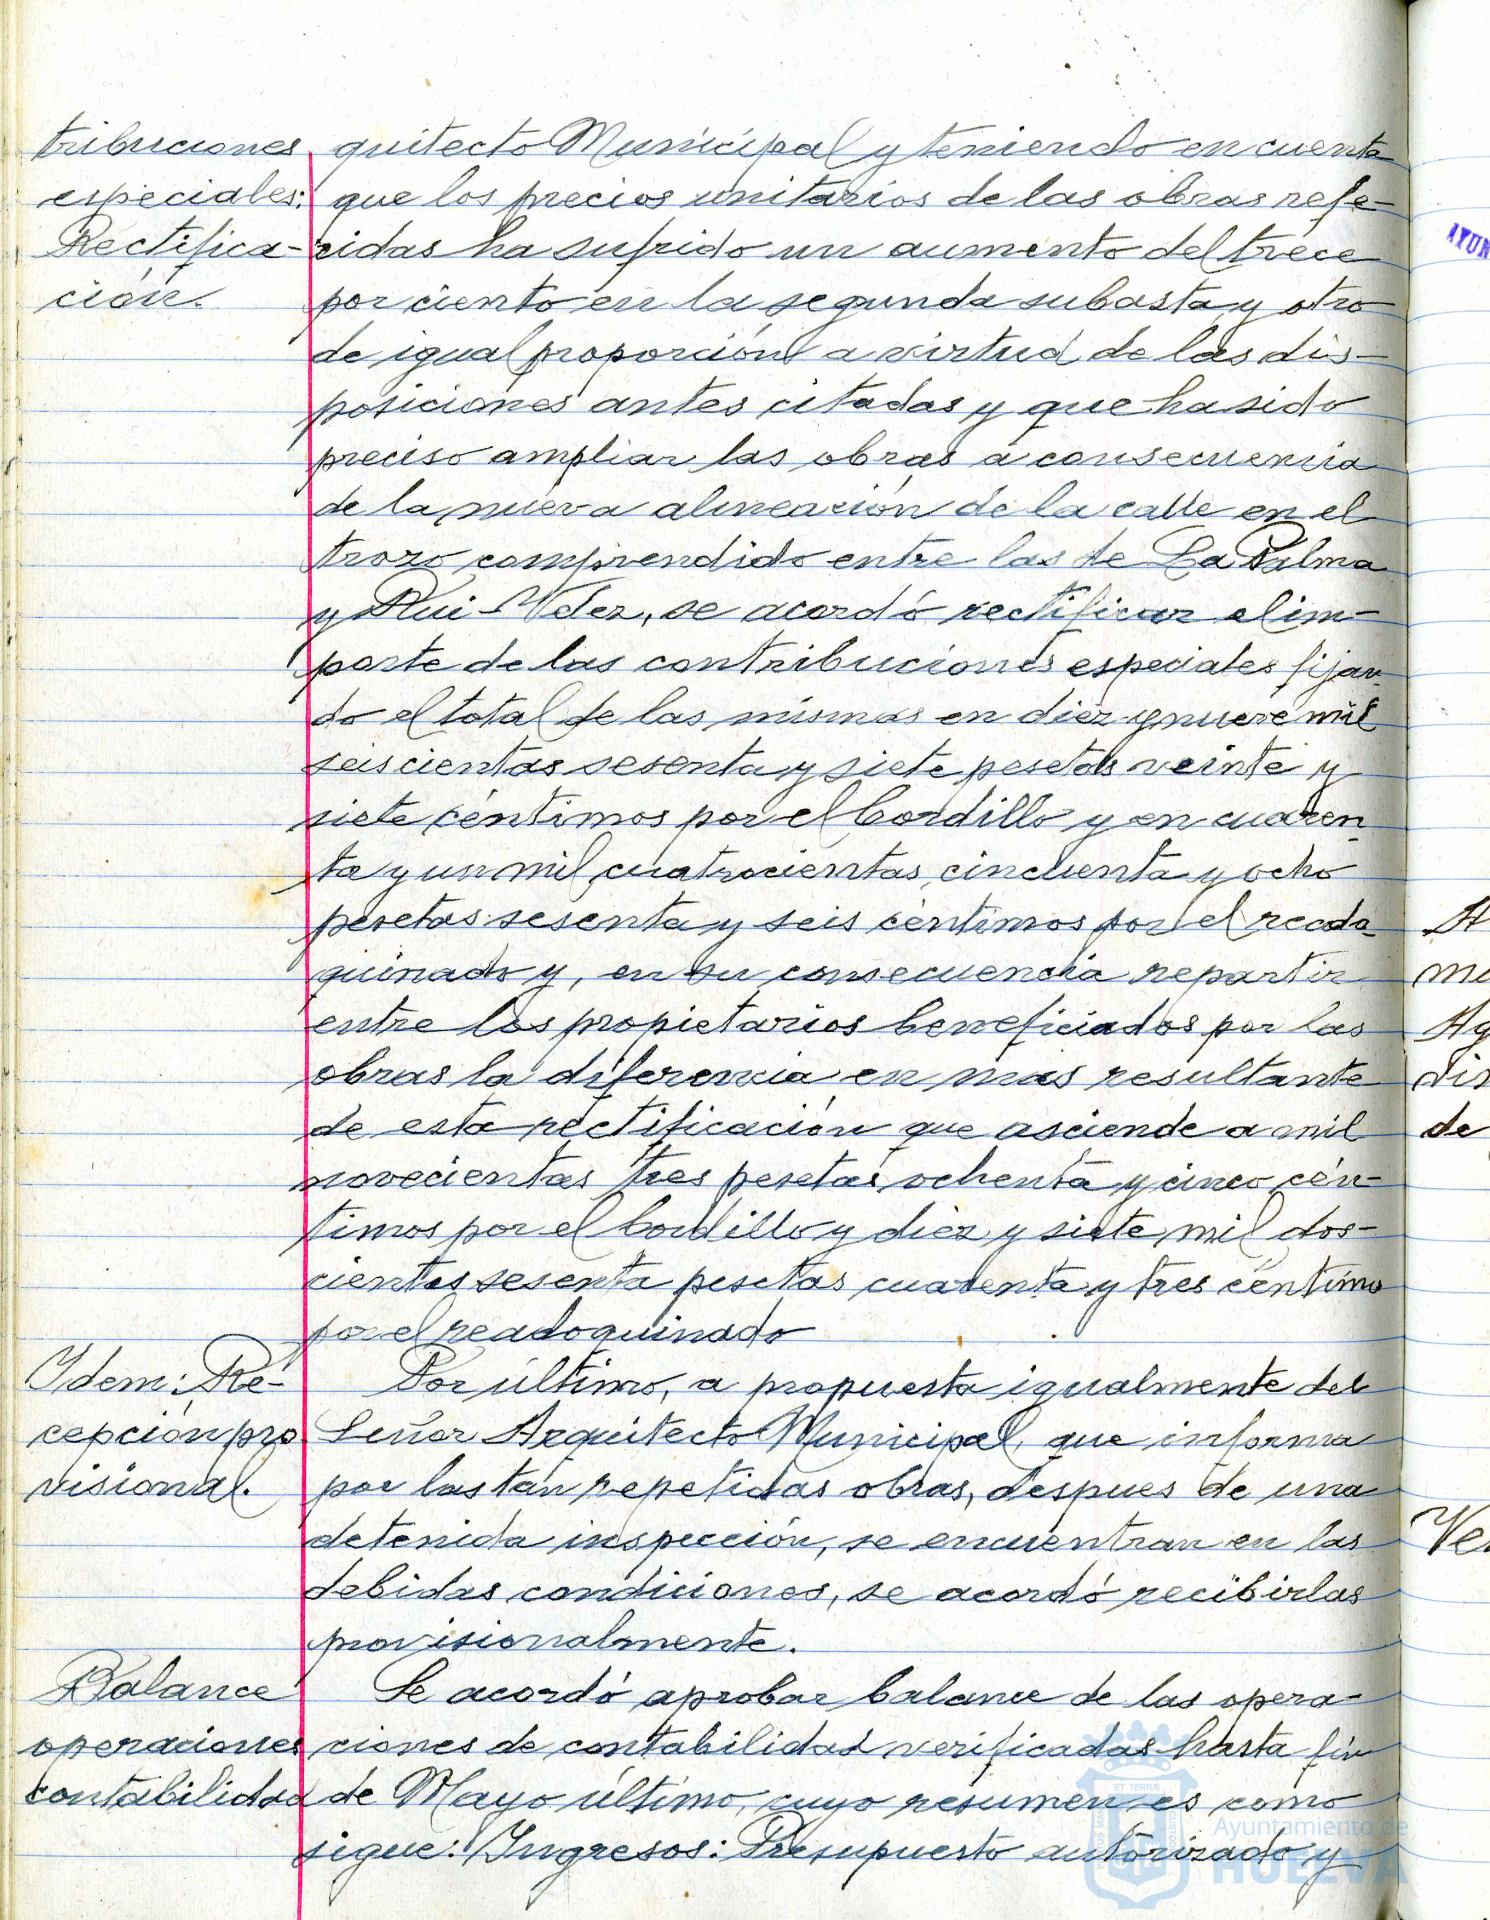 tribuciones
especiales:
Rectifica-
ción.
quitecto Municipal y teniendo en cuenta
que los precios unitarios de las obras refe-
ridas ha sufrido un aumento del trece
por ciento en la segunda subasta y otro
de igual proporción a virtud de las dis-
posiciones antes citadas y que ha sido
preciso ampliar las obras a consecuencia
de la nueva alineación de la calle en el
trozo comprendido entre las de La Palma
y Rui-Velez, se acordó rectificar el im-
porte de las contribuciones especiales fijan-
do el total de las mismas en diez y nueve mil
seiscientas sesenta y siete pesetas veinte y
siete céntimos por el bordillo y en cuaren
ta y un mil cuatrocientas cincuenta y ocho
pesetas sesenta y seis céntimos por el reado
quinado y, en su consecuencia repartir
entre los propietarios beneficiados por las
obras la diferencia en mas resultante
de esta rectificación que asciende a mil
novecientas tres pesetas ochenta y cinco cén-
timos por el bordillo y diez y siete mil dos-
cientas sesenta pesetas cuarenta y tres céntimo
por el readoquinado
Idem: Re-
cepción pro
visional.
Por último, a propuesta igualmente del
Señor Arquitecto Municipal, que informa
por las tan repetidas obras, despues de una
detenida inspección, se encuentran en las
debidas condiciones, se acordó recibirlas
provisionalmente.
Balance
operaciones
contabilidad
Se acordó aprobar balance de las opera-
ciones de contabilidad verificadas hasta fin
de Mayo último, cuyo resúmen es como
sigue: Ingresos: Presupuesto autorizado y
AYUN
A
me
Ag
dis
de
Ve
ET TERRÆ
Ayuntamiento de
HUELVA